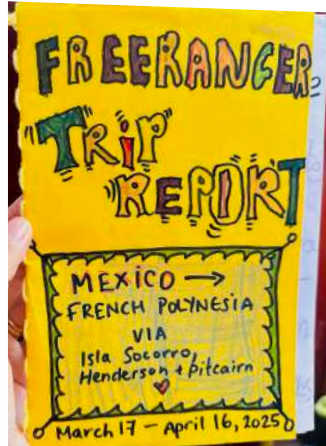 FREERANGER
TRiP
REPORT
MEXICO →
FRENCH POLYNESIA
VIA
Isla Socorro,
Henderson + Pitcairn
March 17 – April 16, 2025